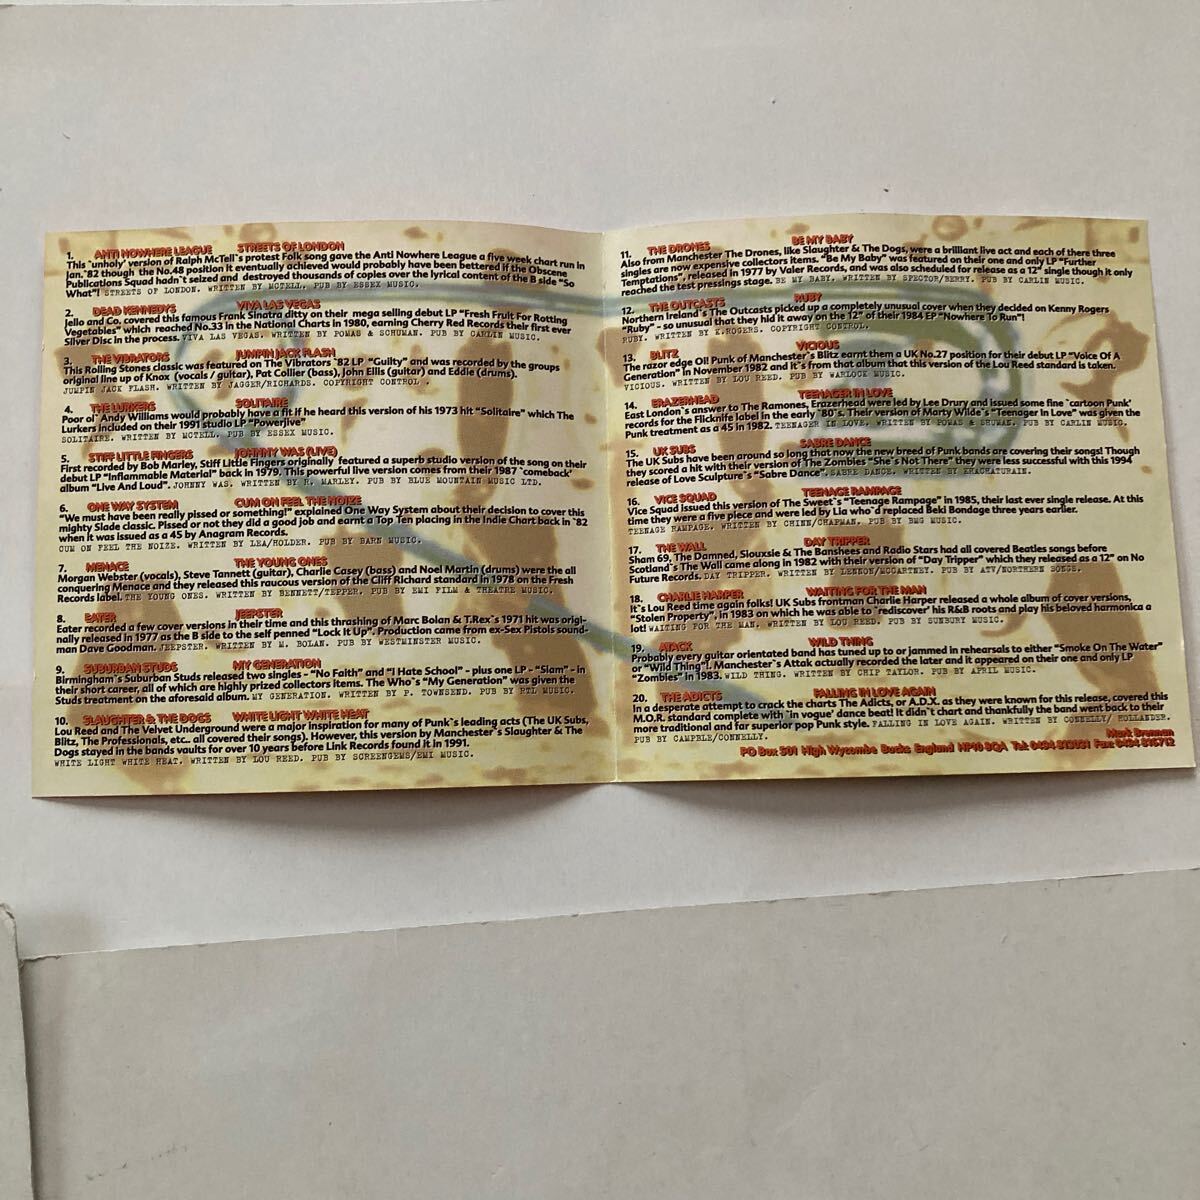 1. ANTI NOWHERE LEAGUE STREETS OF LONDON
This `unholy´ version of Ralph McTell`s protest Folk song gave the Anti Nowhere League a five week chart run in
Jan.`82 though the No.48 position it eventually achieved would probably have been bettered if the Obscene
Publications Squad hadn`t seized and destroyed thousands of copies over the lyrical content of the B side “So
What”! STREETS OF LONDON. WRITTEN BY MCTELL. PUB BY ESSEX MUSIC.
2. DEAD KENNEDYS VIVA LAS VEGAS
Jello and Co. covered this famous Frank Sinatra ditty on their mega selling debut LP “Fresh Fruit For Rotting
Vegetables” which reached No.33 in the National Charts in 1980, earning Cherry Red Records their first ever
Silver Disc in the process. VIVA LAS VEGAS. WRITTEN BY POMAS & SCHUMAN. PUB BY CARLIN MUSIC.
3. THE VIBRATORS JUMPIN JACK FLASH
This Rolling Stones classic was featured on The Vibrators `82 LP “Guilty” and was recorded by the groups
original line up of Knox (vocals / guitar), Pat Collier (bass), John Ellis (guitar) and Eddie (drums).
JUMPIN JACK FLASH. WRITTEN BY JAGGER/RICHARDS. COPYRIGHT CONTROL .
4. THE LURKERS SOLITAIRE
Poor ol` Andy Williams would probably have a fit if he heard this version of his 1973 hit “Solitaire” which The
Lurkers included on their 1991 studio LP “Powerjive”
SOLITAIRE. WRITTEN BY MCTELL. PUB BY ESSEX MUSIC.
5. STIFF LITTLE FINGERS JOHNNY WAS (LIVE)
First recorded by Bob Marley, Stiff Little Fingers originally featured a superb studio version of the song on their
debut LP “Inflammable Material” back in 1979. This powerful live version comes from their 1987 `comeback’
album “Live And Loud”. JOHNNY WAS. WRITTEN BY R. MARLEY. PUB BY BLUE MOUNTAIN MUSIC LTD.
6. ONE WAY SYSTEM CUM ON FEEL THE NOIZE
“We must have been really pissed or something!” explained One Way System about their decision to cover this
mighty Slade classic. Pissed or not they did a good job and earnt a Top Ten placing in the Indie Chart back in `82
when it was issued as a 45 by Anagram Records.
CUM ON FEEL THE NOIZE. WRITTEN BY LEA/HOLDER. PUB BY BARN MUSIC.
7. MENACE THE YOUNG ONES
Morgan Webster (vocals), Steve Tannett (guitar), Charlie Casey (bass) and Noel Martin (drums) were the all
conquering Menace and they released this raucous version of the Cliff Richard standard in 1978 on the Fresh
Records label. THE YOUNG ONES. WRITTEN BY BENNETT/TEPPER. PUB BY EMI FILM & THEATRE MUSIC.
8. EATER JEEPSTER
Eater recorded a few cover versions in their time and this thrashing of Marc Bolan & T.Rex`s 1971 hit was origi-
nally released in 1977 as the B side to the self penned “Lock It Up”. Production came from ex-Sex Pistols sound-
man Dave Goodman. JEEPSTER. WRITTEN BY M. BOLAN. PUB BY WESTMINSTER MUSIC.
9. SUBURBAN STUDS MY GENERATION
Birmingham`s Suburban Studs released two singles - “No Faith” and “I Hate School” - plus one LP - “Slam” - in
their short career, all of which are highly prized collectors items. The Who`s “My Generation” was given the
Studs treatment on the aforesaid album. MY GENERATION. WRITTEN BY P. TOWNSEND. PUB BY RTL MUSIC.
10. SLAUGHTER & THE DOGS WHITE LIGHT WHITE HEAT
Lou Reed and The Velvet Underground were a major inspiration for many of Punk`s leading acts (The UK Subs,
Blitz, The Professionals, etc.. all covered their songs). However, this version by Manchester`s Slaughter & The
Dogs stayed in the bands vaults for over 10 years before Link Records found it in 1991.
WHITE LIGHT WHITE HEAT. WRITTEN BY LOU REED. PUB BY SCREENGEMS/EMI MUSIC.
11. THE DRONES BE MY BABY
Also from Manchester The Drones, like Slaughter & The Dogs, were a brilliant live act and each of there three
singles are now expensive collectors items. “Be My Baby” was featured on their one and only LP “Further
Temptations”, released in 1977 by Valer Records, and was also scheduled for release as a 12” single though it only
reached the test pressings stage. BE MY BABY. WRITTEN BY SPECTOR/BERRY. PUB BY CARLIN MUSIC.
12. THE OUTCASTS RUBY
Northern Ireland`s The Outcasts picked up a completely unusual cover when they decided on Kenny Rogers
“Ruby” - so unusual that they hid it away on the 12” of their 1984 EP “Nowhere To Run”!
RUBY. WRITTEN BY K.ROGERS. COPYRIGHT CONTROL.
13. BLITZ VICIOUS
The razor edge Oi! Punk of Manchester`s Blitz earnt them a UK No.27 position for their debut LP “Voice Of A
Generation” in November 1982 and it`s from that album that this version of the Lou Reed standard is taken.
VICIOUS. WRITTEN BY LOU REED. PUB BY WARLOCK MUSIC.
14. ERAZERHEAD TEENAGER IN LOVE
East London`s answer to The Ramones, Erazerhead were led by Lee Drury and issued some fine `cartoon Punk’
records for the Flicknife label in the early `80`s. Their version of Marty Wilde`s “Teenager In Love” was given the
Punk treatment as a 45 in 1982. TEENAGER IN LOVE. WRITTEN BY POMAS & SHUMAN. PUB BY CARLIN MUSIC.
15. UK SUBS SABRE DANCE
The UK Subs have been around so long that now the new breed of Punk bands are covering their songs! Though
they scored a hit with their version of The Zombies “She`s Not There” they were less successful with this 1994
release of Love Sculpture`s “Sabre Dance”. SABRE DANCE. WRITTEN BY KHACHATURAIN.
16. VICE SQUAD TEENAGE RAMPAGE
Vice Squad issued this version of The Sweet`s “Teenage Rampage” in 1985, their last ever single release. At this
time they were a five piece and were led by Lia who`d replaced Beki Bondage three years earlier.
TEENAGE RAMPAGE. WRITTEN BY CHINN/CHAPMAN. PUB BY BMG MUSIC.
17. THE WALL DAY TRIPPER
Sham 69, The Damned, Siouxsie & The Banshees and Radio Stars had all covered Beatles songs before
Scotland`s The Wall came along in 1982 with their version of “Day Tripper” which they released as a 12” on No
Future Records. DAY TRIPPER. WRITTEN BY LENNON/MCCARTNEY. PUB BY ATV/NORTHERN SONGS.
18. CHARLIE HARPER WAITING FOR THE MAN
It`s Lou Reed time again folks! UK Subs frontman Charlie Harper released a whole album of cover versions,
“Stolen Property”, in 1983 on which he was able to `rediscover’ his R&B roots and play his beloved harmonica a
lot! WAITING FOR THE MAN. WRITTEN BY LOU REED. PUB BY SUNBURY MUSIC.
19. ATACK WILD THING
Probably every guitar orientated band has tuned up to or jammed in rehearsals to either “Smoke On The Water”
or “Wild Thing”!. Manchester`s Attak actually recorded the later and it appeared on their one and only LP
“Zombies” in 1983. WILD THING. WRITTEN BY CHIP TAYLOR. PUB BY APRIL MUSIC.
20. THE ADICTS FALLING IN LOVE AGAIN
In a desperate attempt to crack the charts The Adicts, or A.D.X. as they were known for this release, covered this
M.O.R. standard complete with `in vogue’ dance beat! It didn`t chart and thankfully the band went back to their
more traditional and far superior pop Punk style. FALLING IN LOVE AGAIN. WRITTEN BY CONNELLY/ HOLLANDER.
PUB BY CAMPBLE/CONNELLY.
Mark Brennan
PO Box 501 High Wycombe Bucks England HP10 8QA Tel: 0494 813031 Fax: 0494 816712